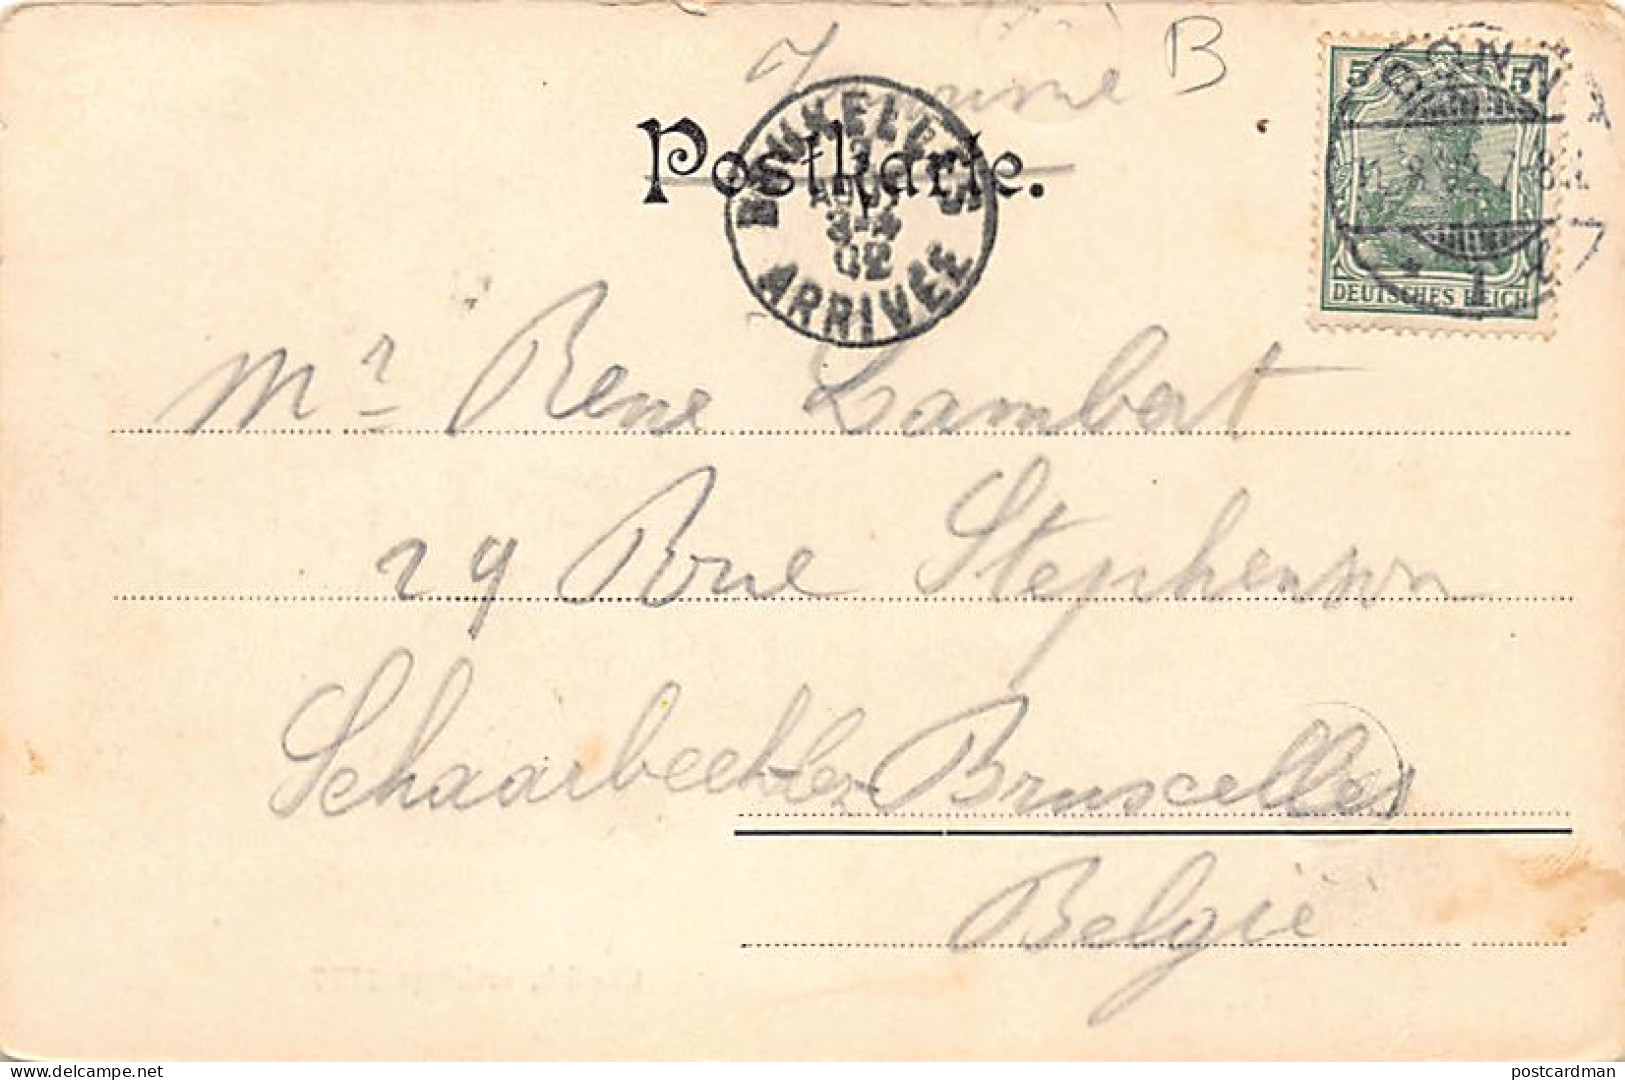 B
Postkarte.
BRUXELLES
AOUT
3-4
02
ARRIVEE
5 5
BONN
DEUTSCHES REICH
Mr Rene Lambert
29 Rue Stephenson
Schaarbeek-lez-Bruxcelles
Belgie
postcardman